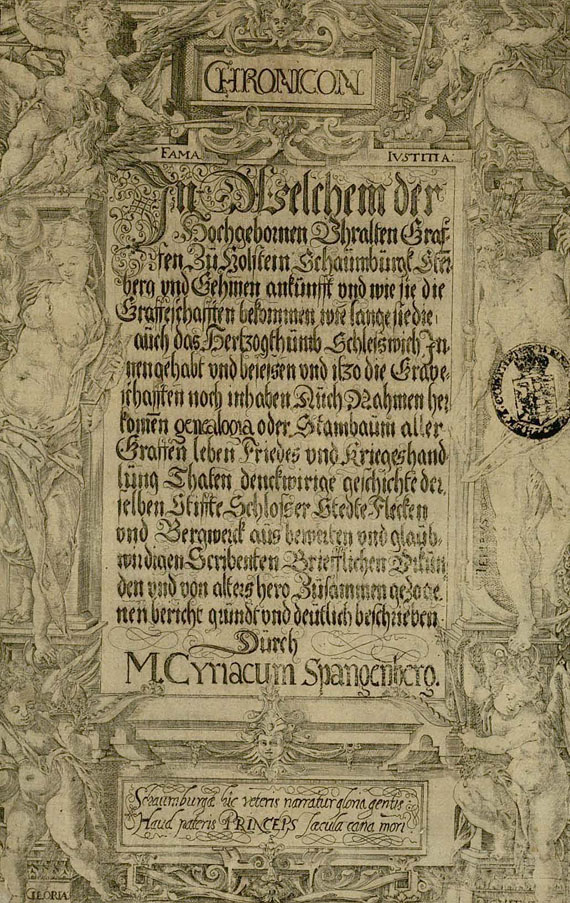 CHRONICON
FAMA
IVSTITIA
In Welchem der
Hochgebornen Vhralten Graf-
fen Zu Holstein Schaumburgk Ster-
berg vnd Gehmen ankunfft vnd wie sie die
Graffeschafften bekommen wie lange sie die
auch das Hertzogthumb Schleswich In-
nengehabt vnd besessen vnd itzo die Grave-
schafften noch inhaben Auch Nahmen her
komen genealogia oder Stambaum aller
Graffen leben Friedes vnd Krieges hand
lung Thaten denckwirige geschichte der
selben Stiffte Schlosser Stedte Flecken
vnd Bergwerck aus bewerten vnd glaub-
wirdigen Scribenten Briefflichen Vrkun
den vnd von alters hero Zusammen gezoge
nen bericht grundt vnd deutlich beschrieben
Durch
M. Cyriacum Spangenberg.
Schaumburgæ hic veteris narratur gloria gentis
Haud pateris PRINCEPS sæcula cana mori
GLORIA